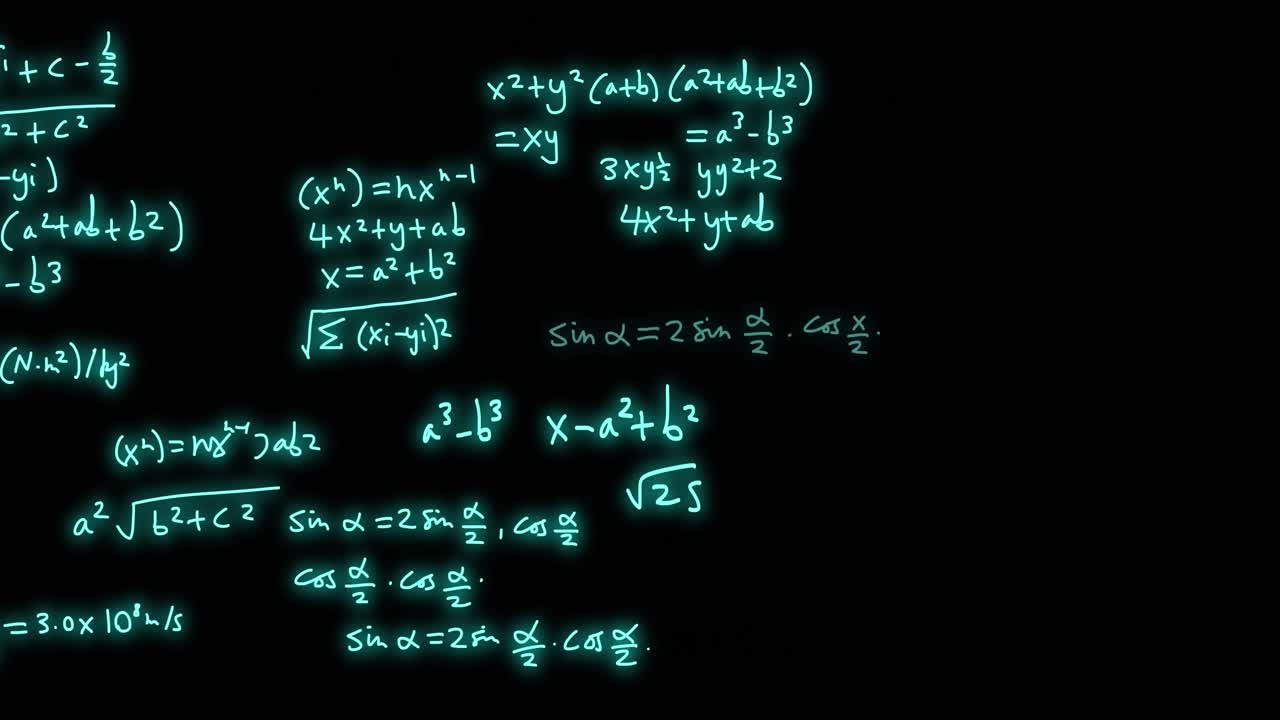 i + c - b/2
2 + c²
-yi)
(a²+ab+b²)
- b³
(N·m²)/kg²
x²+y² (a+b) (a²+ab+b²)
=xy = a³-b³
3xy½ yy²+2
4x²+y+ab
(xⁿ)=nxⁿ⁻¹
4x²+y+ab
x=a²+b²
√Σ (xi-yi)²
sin α=2 sin α/2 . cos x/2.
a³-b³ x-a²+b²
√25
(xⁿ)=nxⁿ⁻¹)ab2
a²√b²+c²
sin α=2 sin α/2, cos α/2
cos α/2 . cos α/2.
=3.0x10⁸m/s
sin α=2 sin α/2 . cos α/2.